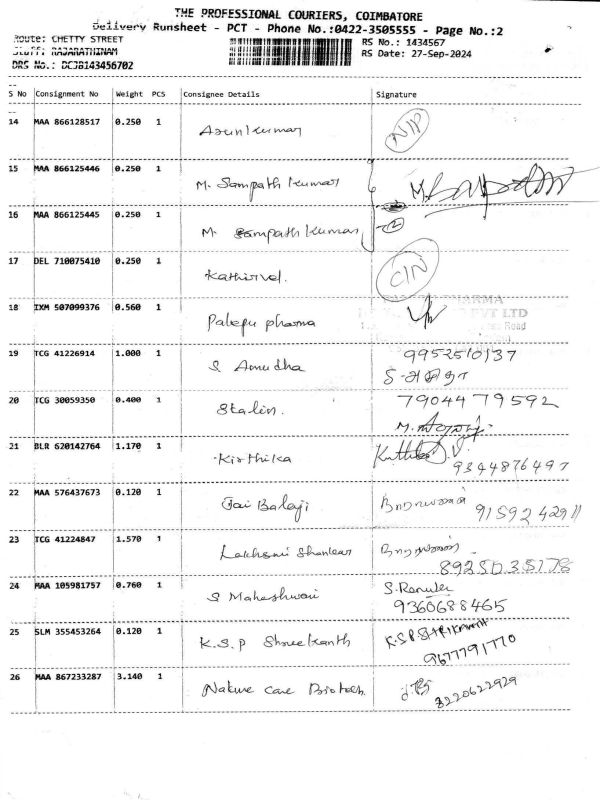 THE PROFESSIONAL COURIERS, COIMBATORE
Delivery Runsheet - PCT - Phone No.:0422-3505555 - Page No.:2
Route: CHETTY STREET
RS No.: 1434567
Staff: RAJARATHINAM
RS Date: 27-Sep-2024
DRS No.: DCJB143456702
S No Consignment No Weight PCS Consignee Details Signature
14 MAA 866128517 0.250 1 Arunkumar
15 MAA 866125446 0.250 1 M. Sampath kumar
16 MAA 866125445 0.250 1 M. Sampath kumar 2
17 DEL 710075410 0.250 1 Kathirvel. C/N
18 IXM 507099376 0.560 1 pharma
PHARMA
PVT LTD
Road
19 TCG 41226914 1.000 1 S Amudha 9952510137
S-அமுதா
20 TCG 30059350 0.400 1 Stalin. 7904479592
21 BLR 620142764 1.170 1 Kirthika
9344876497
22 MAA 576437673 0.120 1 Jai Balaji நாராயணன்
9159242911
23 TCG 41224847 1.570 1 Lakhsmi Shankar நாராயணன்
8925035178
24 MAA 105981757 0.760 1 S Maheshwari S. Renuka
9360688465
25 SLM 355453264 0.120 1 K.S.P Shreekanth K.S.P SHRIKANTH
9677791770
26 MAA 867233287 3.140 1 Nature care Biotech.
8220622929